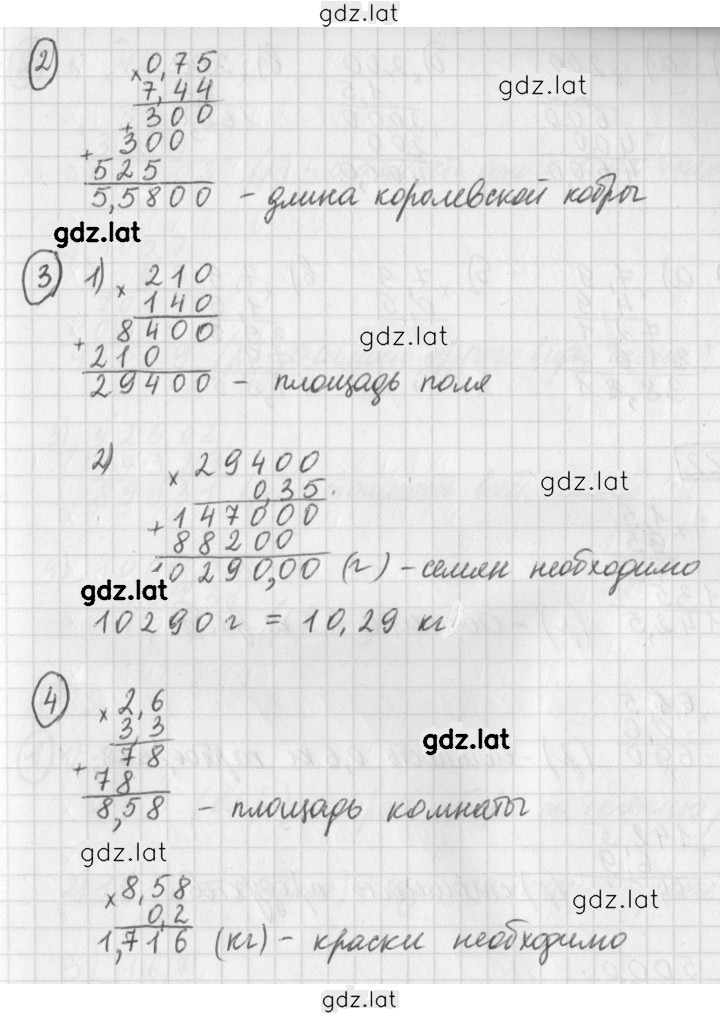 gdz.lat
2
× 0,75
7,44
gdz.lat
+ 300
+ 300
525
5,5800 – длина королевской кобры
gdz.lat
3 1) × 210
140
8400
gdz.lat
+ 210
29400 – площадь поля
2) × 29400
0,35
gdz.lat
+ 147000
88200
10290,00 (г) – семян необходимо
gdz.lat
10290 г = 10,29 кг
4
× 2,6
3,3
gdz.lat
+ 78
78
8,58 – площадь комнаты
gdz.lat
× 8,58
0,2
gdz.lat
1,716 (кг) – краски необходимо
gdz.lat